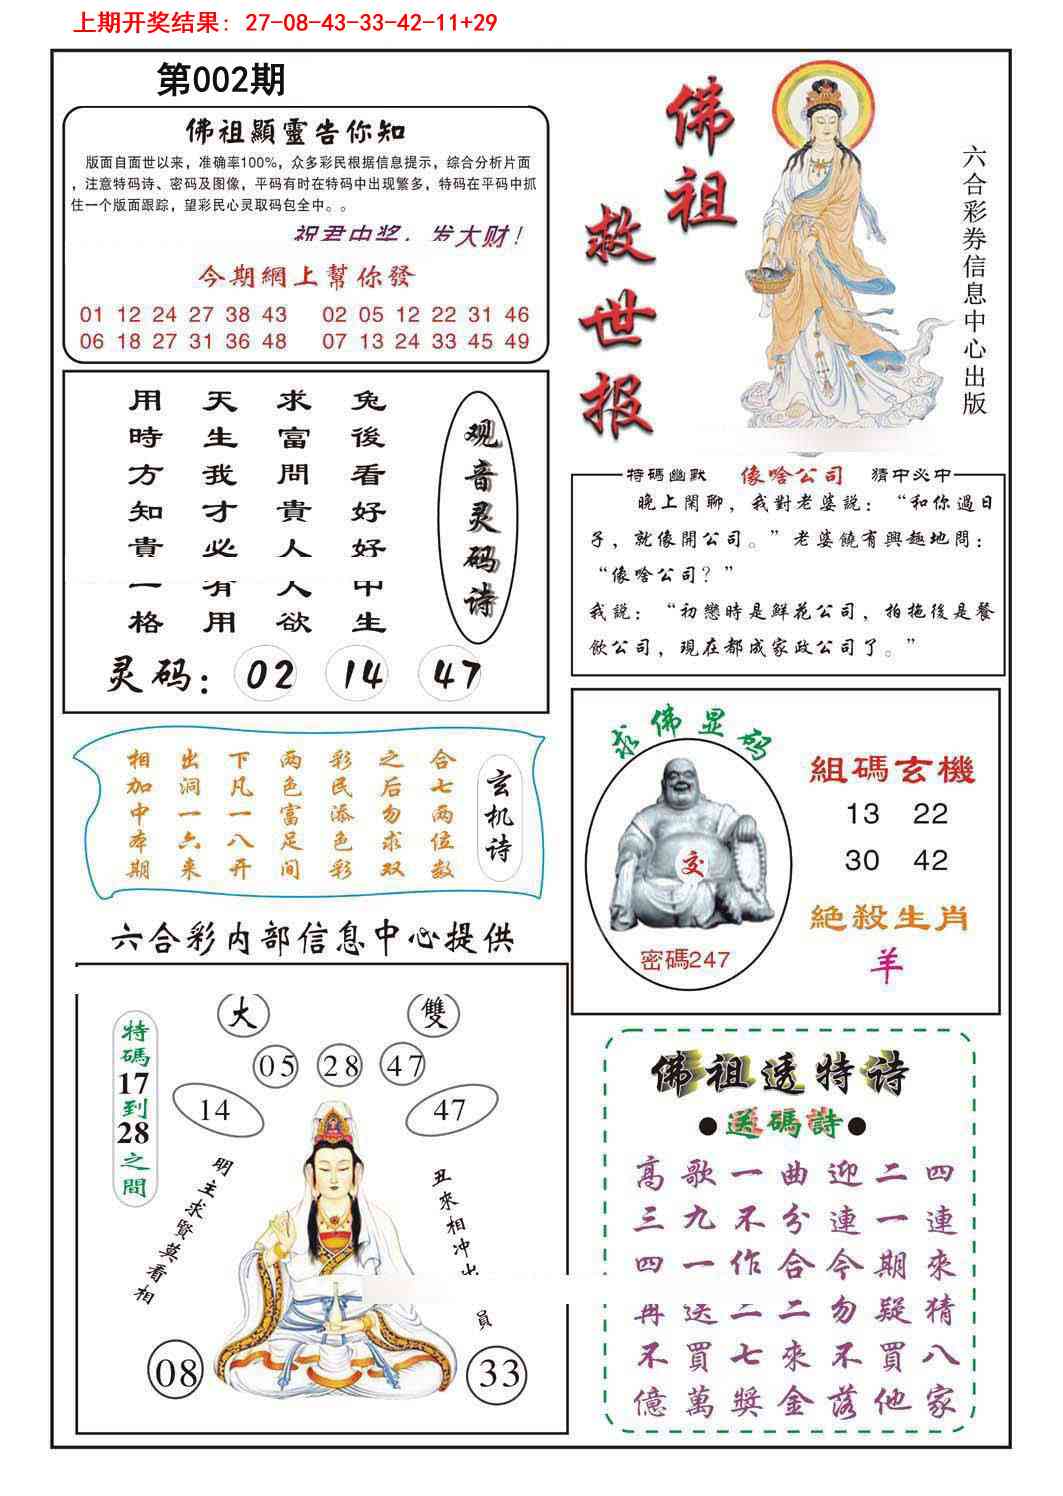 上期开奖结果: 27-08-43-33-42-11+29
第002期
佛祖顯靈告你知
版面自面世以来，准确率100%，众多彩民根据信息提示，综合分析片面
，注意特码诗、密码及图像，平码有时在特码中出现繁多，特码在平码中抓
住一个版面跟踪，望彩民心灵取码包全中。。
祝君中奖，发大财!
今期網上幫你發
01 12 24 27 38 43 02 05 12 22 31 46
06 18 27 31 36 48 07 13 24 33 45 49
佛祖救世报
六合彩券信息中心出版
观音灵码诗
兔後看好好中生
求富問貴人人欲
天生我才必有用
用時方知貴一格
灵码: 02 14 47
特碼幽默 像啥公司 猜中必中
晚上閑聊，我對老婆説：“和你過日
子，就像開公司。”老婆饒有興趣地問：
“像啥公司？”
我説：“初戀時是鮮花公司，拍拖後是餐
飲公司，現在都成家政公司了。”
玄机诗
合七两位数
之后勿求双
彩民添色彩
两色富足间
下凡一八开
出洞一六来
相加中本期
求佛显码
交
密碼247
組碼玄機
13 22
30 42
絶殺生肖
羊
六合彩内部信息中心提供
大 雙
05 28 47
14 47
特碼17到28之間
明主求賢莫看相
丑來相冲出
員
08 33
佛祖透特诗
●送碼詩●
高歌一曲迎二四
三九不分連一連
四一作合今期來
再送二二勿疑猜
不買七來不買八
億萬獎金落他家